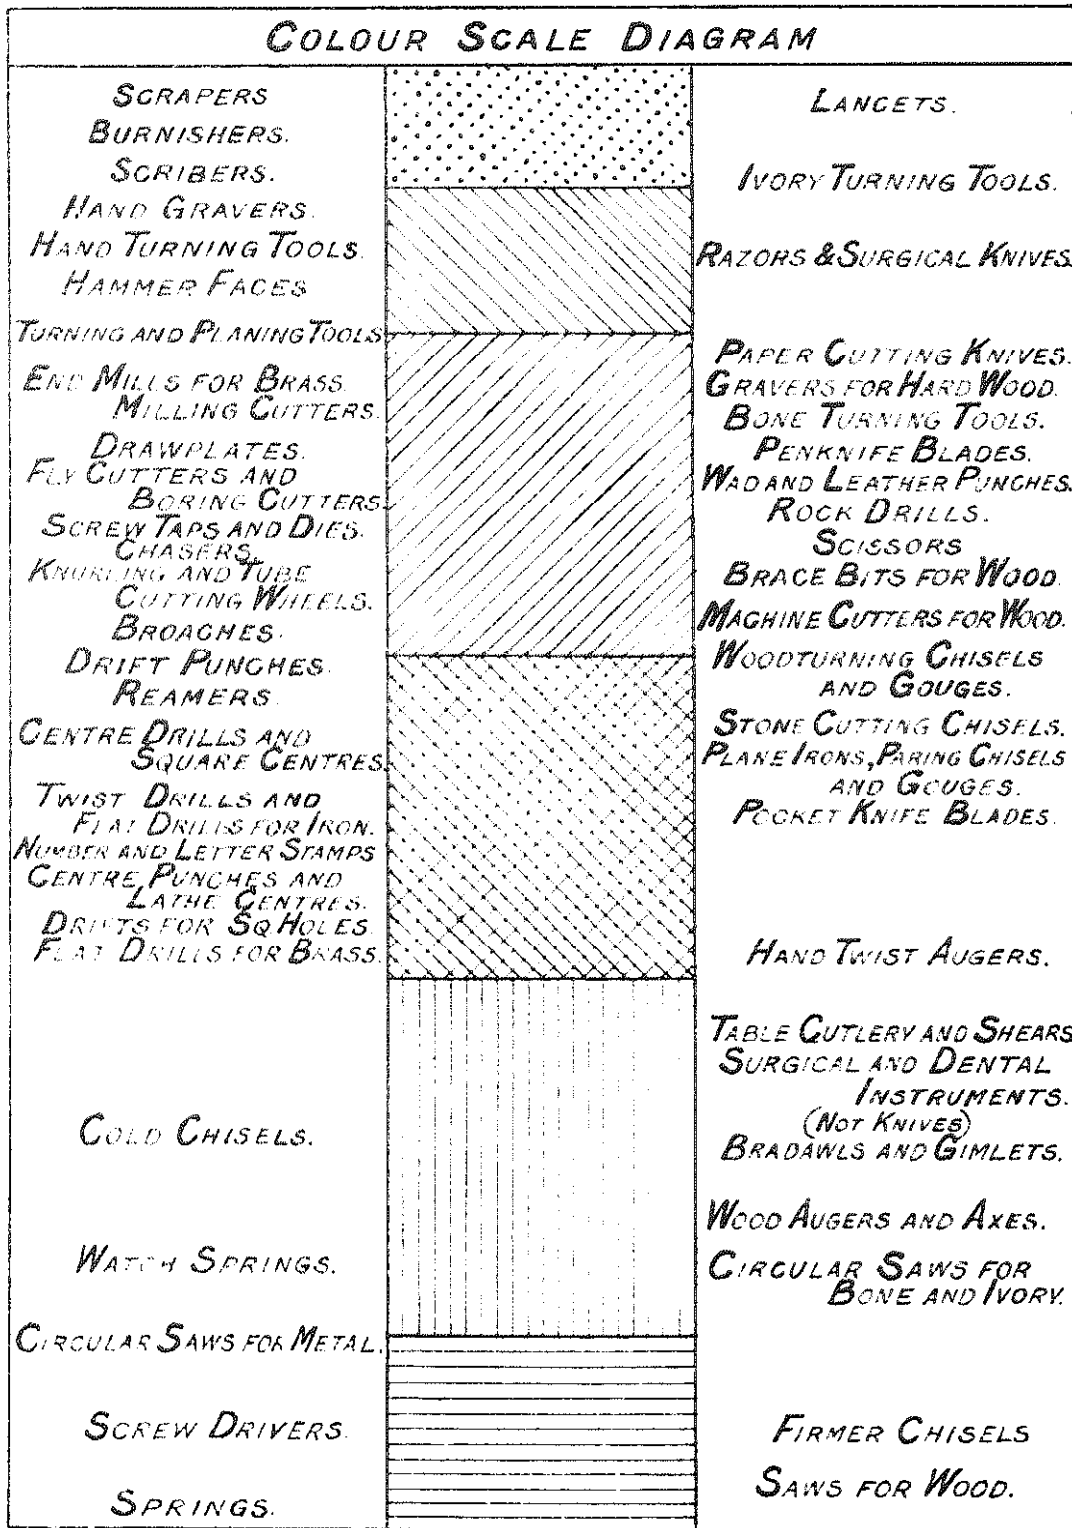 COLOUR SCALE DIAGRAM
SCRAPERS
BURNISHERS.
SCRIBERS.
HAND GRAVERS.
HAND TURNING TOOLS.
HAMMER FACES
TURNING AND PLANING TOOLS
END MILLS FOR BRASS.
MILLING CUTTERS.
DRAWPLATES.
FLY CUTTERS AND
BORING CUTTERS
SCREW TAPS AND DIES.
CHASERS.
KNURLING AND TUBE
CUTTING WHEELS.
BROACHES.
DRIFT PUNCHES.
REAMERS
CENTRE DRILLS AND
SQUARE CENTRES
TWIST DRILLS AND
FLAT DRILLS FOR IRON.
NUMBER AND LETTER STAMPS
CENTRE PUNCHES AND
LATHE CENTRES.
DRIFTS FOR SQ. HOLES.
FLAT DRILLS FOR BRASS.
COLD CHISELS.
WATCH SPRINGS.
CIRCULAR SAWS FOR METAL.
SCREW DRIVERS.
SPRINGS.
LANCETS.
IVORY TURNING TOOLS.
RAZORS & SURGICAL KNIVES.
PAPER CUTTING KNIVES.
GRAVERS FOR HARD WOOD.
BONE TURNING TOOLS.
PENKNIFE BLADES.
WAD AND LEATHER PUNCHES.
ROCK DRILLS.
SCISSORS
BRACE BITS FOR WOOD.
MACHINE CUTTERS FOR WOOD.
WOODTURNING CHISELS
AND GOUGES.
STONE CUTTING CHISELS.
PLANE IRONS, PARING CHISELS
AND GOUGES.
POCKET KNIFE BLADES.
HAND TWIST AUGERS.
TABLE CUTLERY AND SHEARS
SURGICAL AND DENTAL
INSTRUMENTS.
(NOT KNIVES)
BRADAWLS AND GIMLETS.
WOOD AUGERS AND AXES.
CIRCULAR SAWS FOR
BONE AND IVORY.
FIRMER CHISELS
SAWS FOR WOOD.